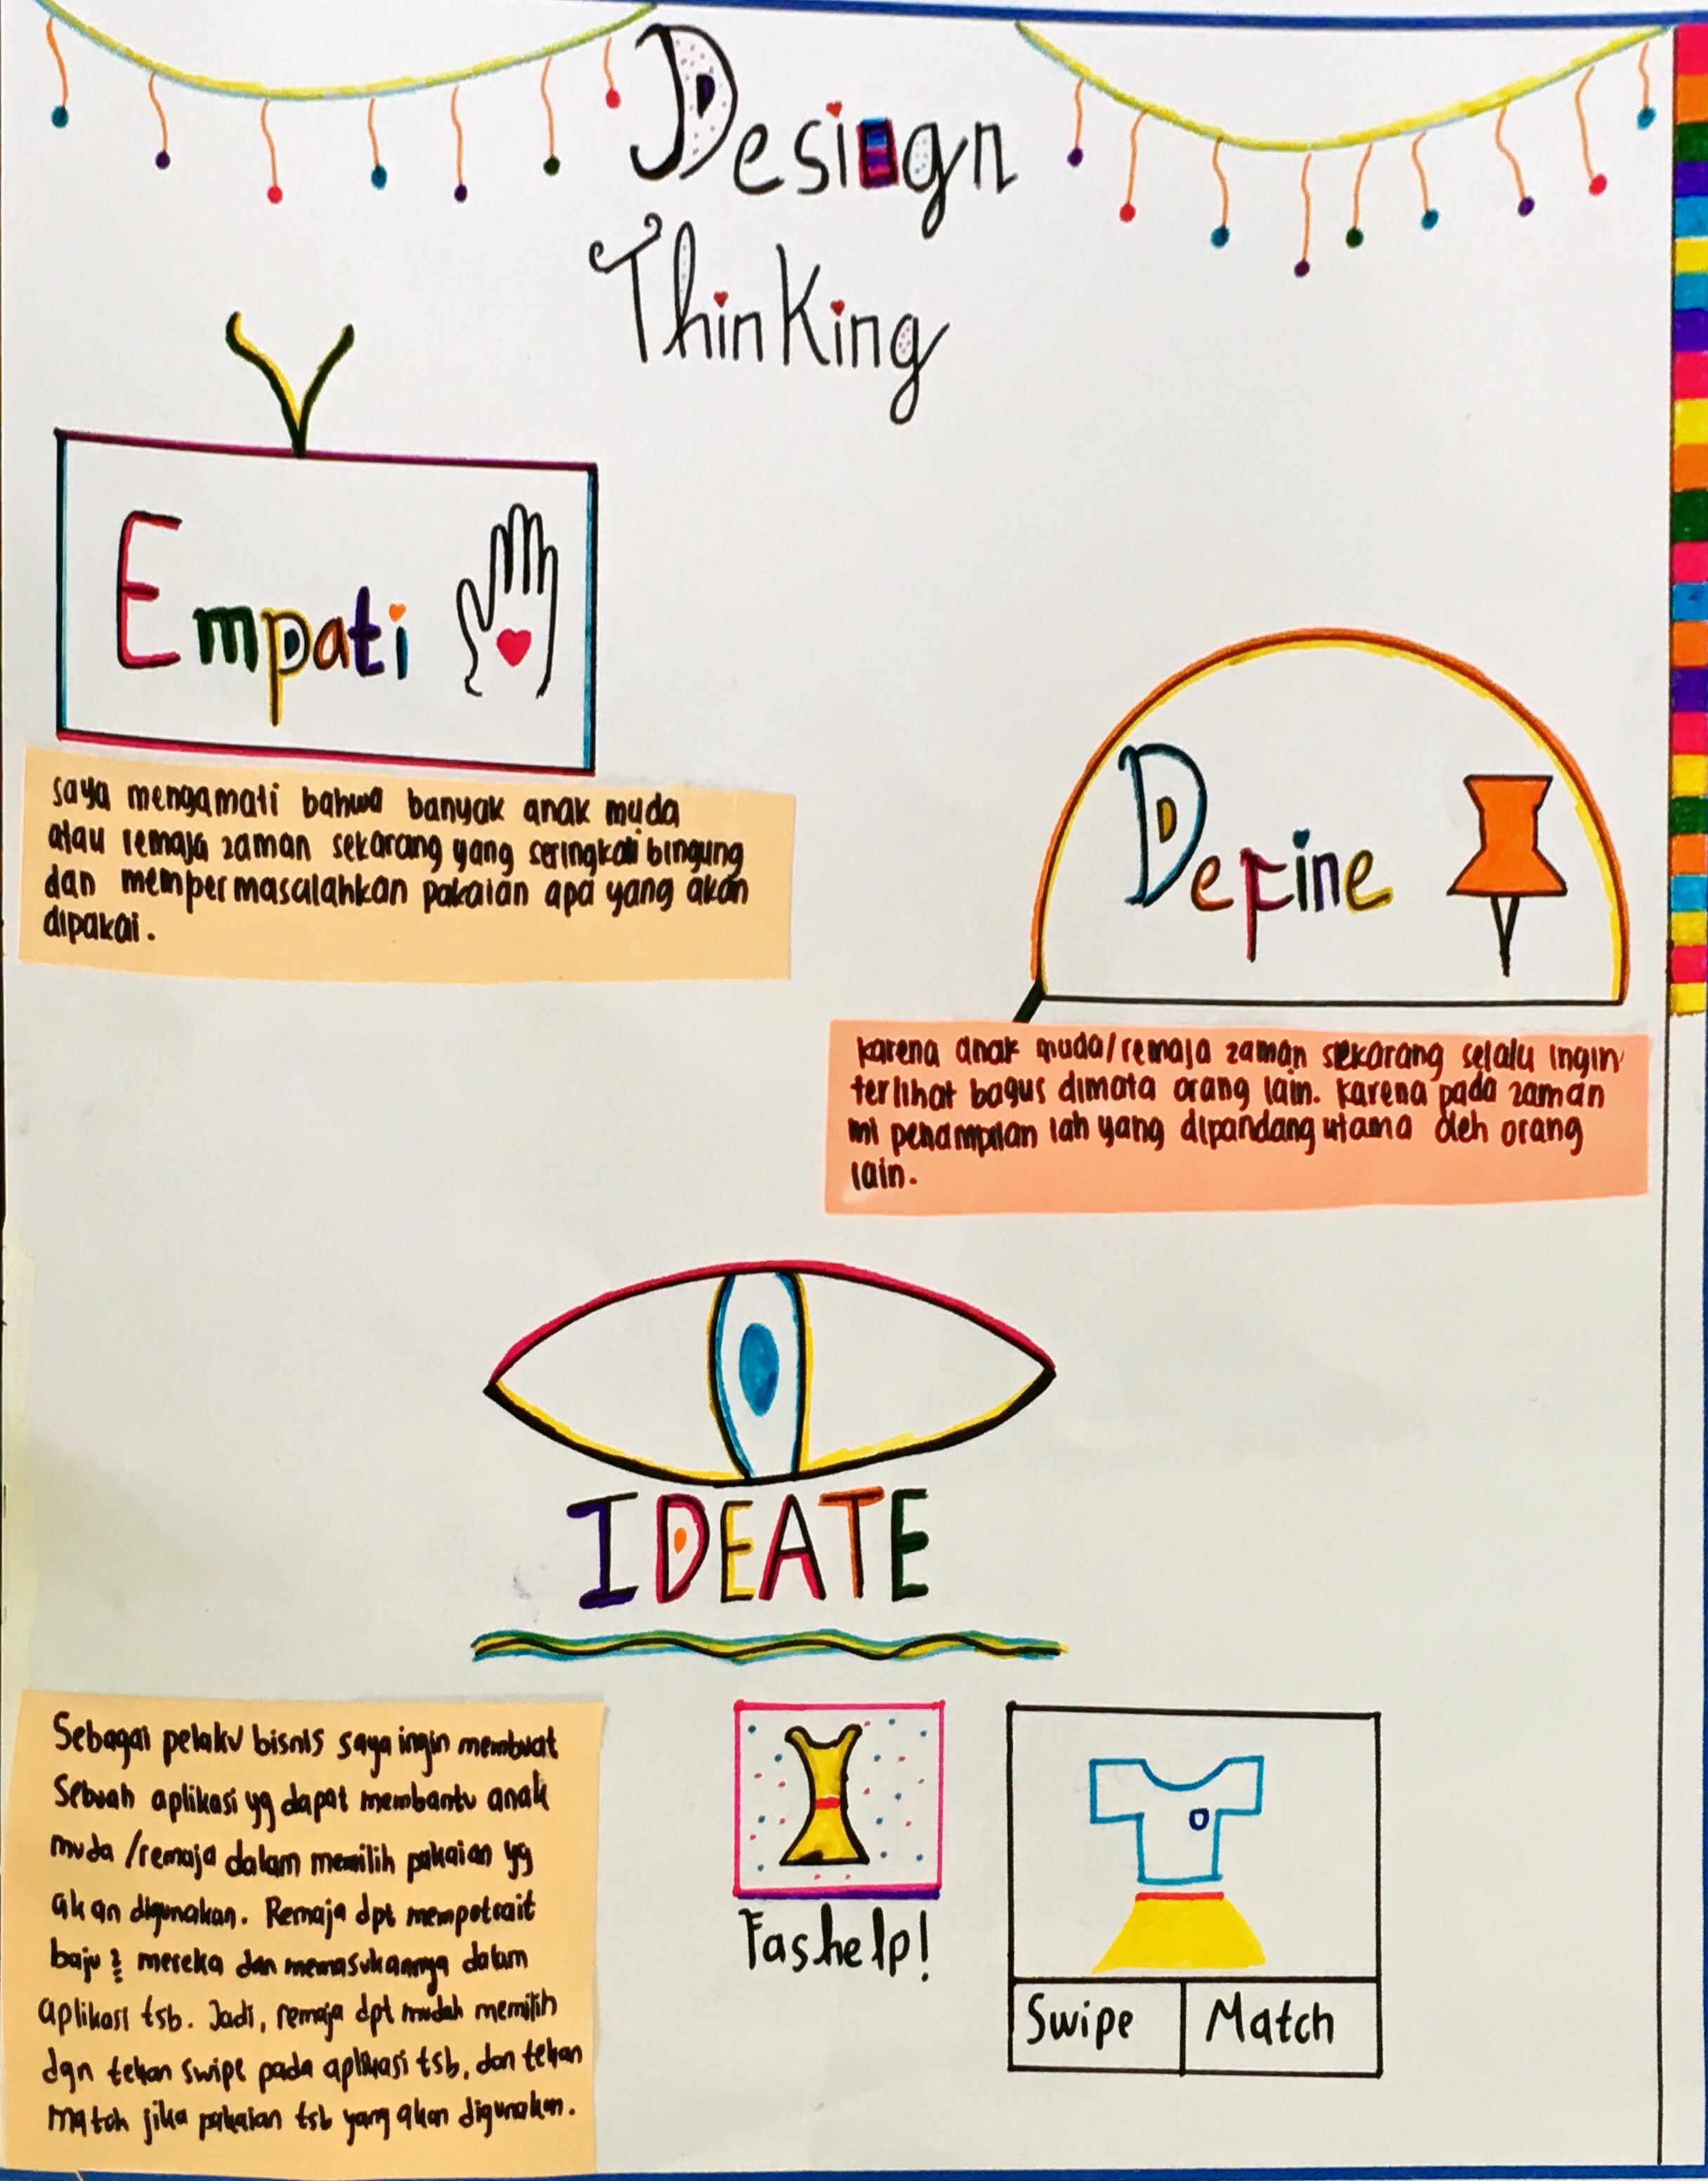 Design
Thinking
Empati
saya mengamati bahwa banyak anak muda
atau remaja zaman sekarang yang seringkali bingung
dan mempermasalahkan pakaian apa yang akan
dipakai.
Define
karena anak muda/remaja zaman sekarang selalu ingin
terlihat bagus dimata orang lain. karena pada zaman
ini penampilan lah yang dipandang utama oleh orang
lain.
IDEATE
Sebagai pelaku bisnis saya ingin membuat
Sebuah aplikasi yg dapat membantu anak
muda /remaja dalam memilih pakaian yg
akan digunakan. Remaja dpt mempotrait
baju2 mereka dan memasukannya dalam
aplikasi tsb. Jadi, remaja dpt mudah memilih
dgn tekan swipe pada aplikasi tsb, dan tekan
match jika pakaian tsb yang akan digunakan.
Fashelp!
Swipe
Match